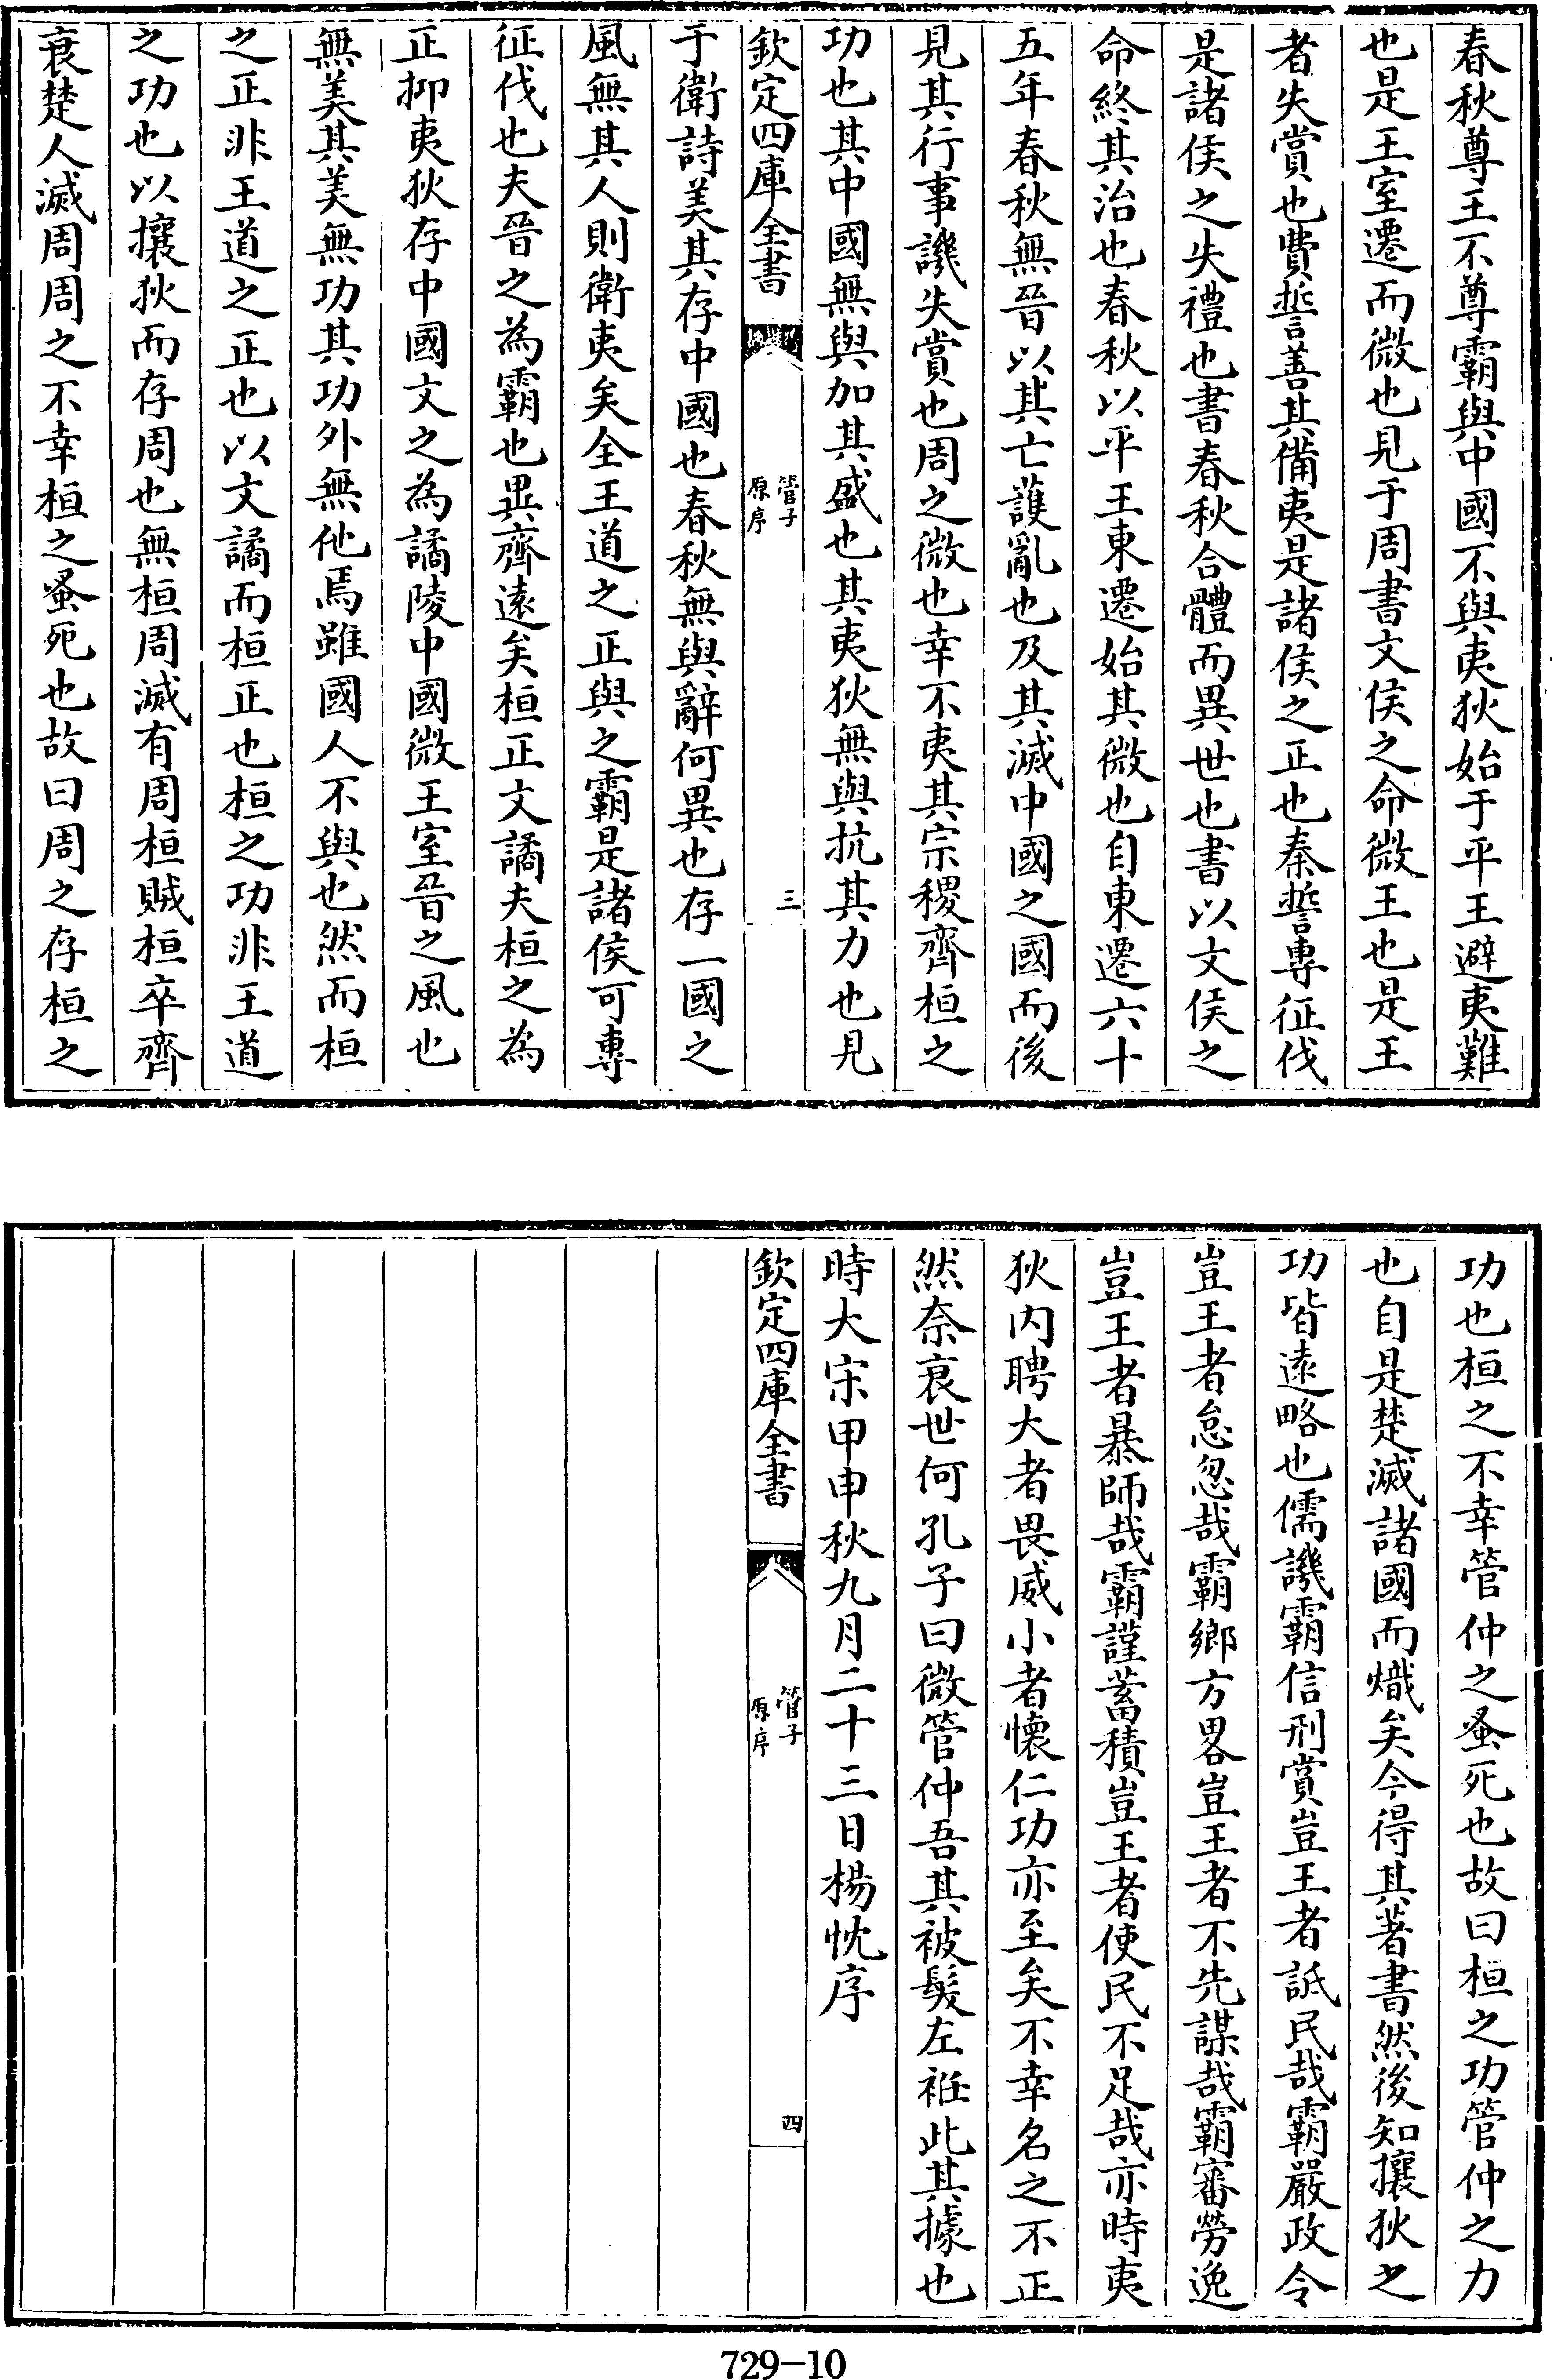 春秋尊王不尊霸與中國不與夷狄始于平王避夷難
也是王室遷而微也見于周書文侯之命微王也是王
者失賞也費誓善其備夷是諸侯之正也秦誓專征伐
是諸侯之失禮也書春秋合體而異世也書以文侯之
命終其治也春秋以平王東遷始其微也自東遷六十
五年春秋無晉以其亡護亂也及其滅中國之國而後
見其行事譏失賞也周之微也幸不夷其宗稷齊桓之
功也其中國無與加其盛也其夷狄無與抗其力也見
欽定四庫全書
管子
原序
三
于衛詩美其存中國也春秋無與辭何異也存一國之
風無其人則衛夷矣全王道之正與之霸是諸侯可專
征伐也夫晉之為霸也異齊遠矣桓正文譎夫桓之為
正抑夷狄存中國文之為譎陵中國微王室晉之風也
無美其美無功其功外無他焉雖國人不與也然而桓
之正非王道之正也以文譎而桓正也桓之功非王道
之功也以攘狄而存周也無桓周滅有周桓賊桓卒齊
衰楚人滅周周之不幸桓之蚤死也故曰周之存桓之
功也桓之不幸管仲之蚤死也故曰桓之功管仲之力
也自是楚滅諸國而熾矣今得其著書然後知攘狄之
功皆遠略也儒譏霸信刑賞豈王者詆民哉霸嚴政令
豈王者怠忽哉霸鄉方畧豈王者不先謀哉霸審勞逸
豈王者暴師哉霸謹蓄積豈王者使民不足哉亦時夷
狄内聘大者畏威小者懷仁功亦至矣不幸名之不正
然奈衰世何孔子曰微管仲吾其被髮左袵此其據也
時大宋甲申秋九月二十三日楊忱序
欽定四庫全書
管子
原序
四
729-10